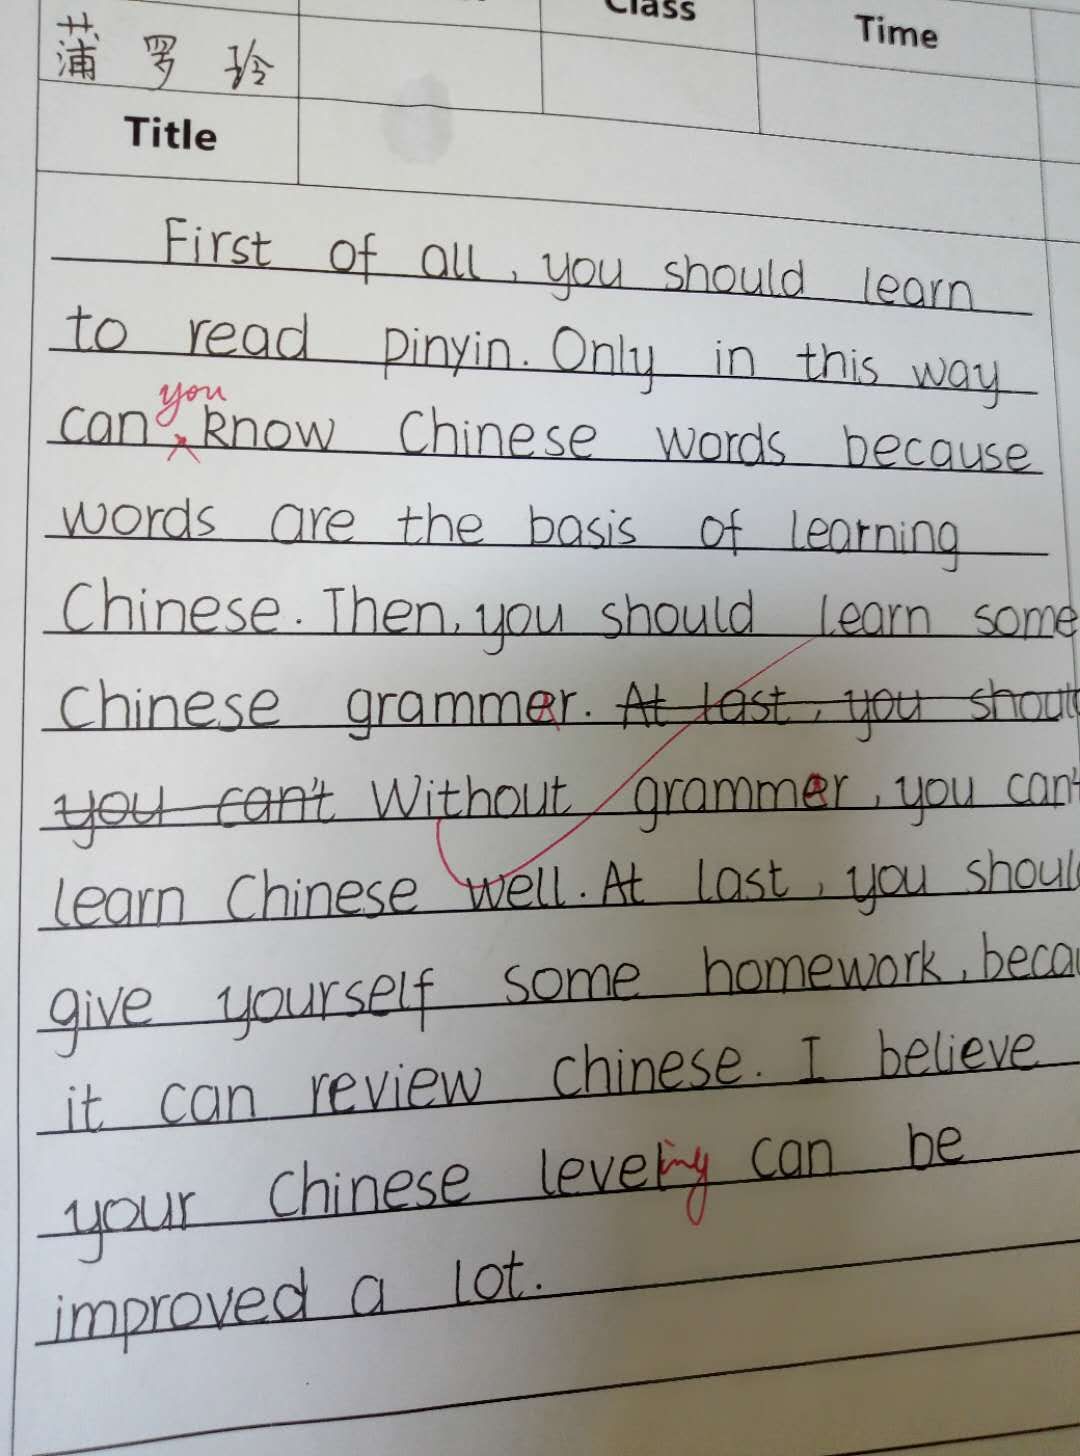 Class
Time
蒲罗玲
Title
First of all, you should learn
to read pinyin. Only in this way
can you know Chinese words because
words are the basis of learning
Chinese. Then, you should learn some
Chinese grammar. At last, you shoul
you can't Without grammar, you can't
learn Chinese well. At last, you shoul
give yourself some homework, becau
it can review chinese. I believe
your Chinese leveling can be
improved a lot.